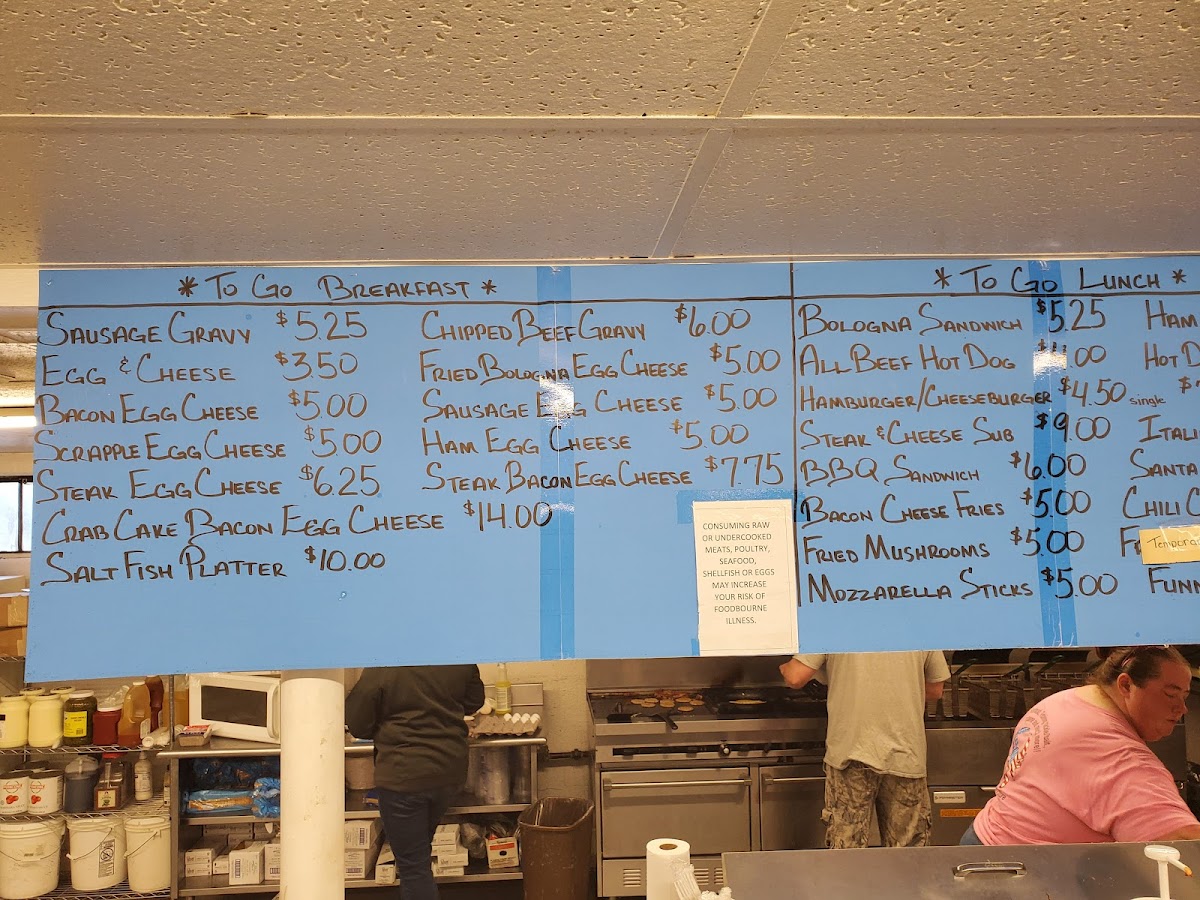 * To Go Breakfast *
Sausage Gravy $5.25
Egg & Cheese $3.50
Bacon Egg Cheese $5.00
Scrapple Egg Cheese $5.00
Steak Egg Cheese $6.25
Crab Cake Bacon Egg Cheese $14.00
Salt Fish Platter $10.00
Chipped Beef Gravy $6.00
Fried Bologna Egg Cheese $5.00
Sausage Egg Cheese $5.00
Ham Egg Cheese $5.00
Steak Bacon Egg Cheese $7.75
CONSUMING RAW
OR UNDERCOOKED
MEATS, POULTRY,
SEAFOOD,
SHELLFISH OR EGGS
MAY INCREASE
YOUR RISK OF
FOODBOURNE
ILLNESS.
* To Go Lunch *
Bologna Sandwich $5.25
All Beef Hot Dog .00
Hamburger/Cheeseburger $4.50 single $
Steak & Cheese Sub $9.00
BBQ Sandwich $6.00
Bacon Cheese Fries $5.00
Fried Mushrooms $5.00
Mozzarella Sticks $5.00
Ham
Hot D
Itali
Santa
Chili C
Fr
Funn